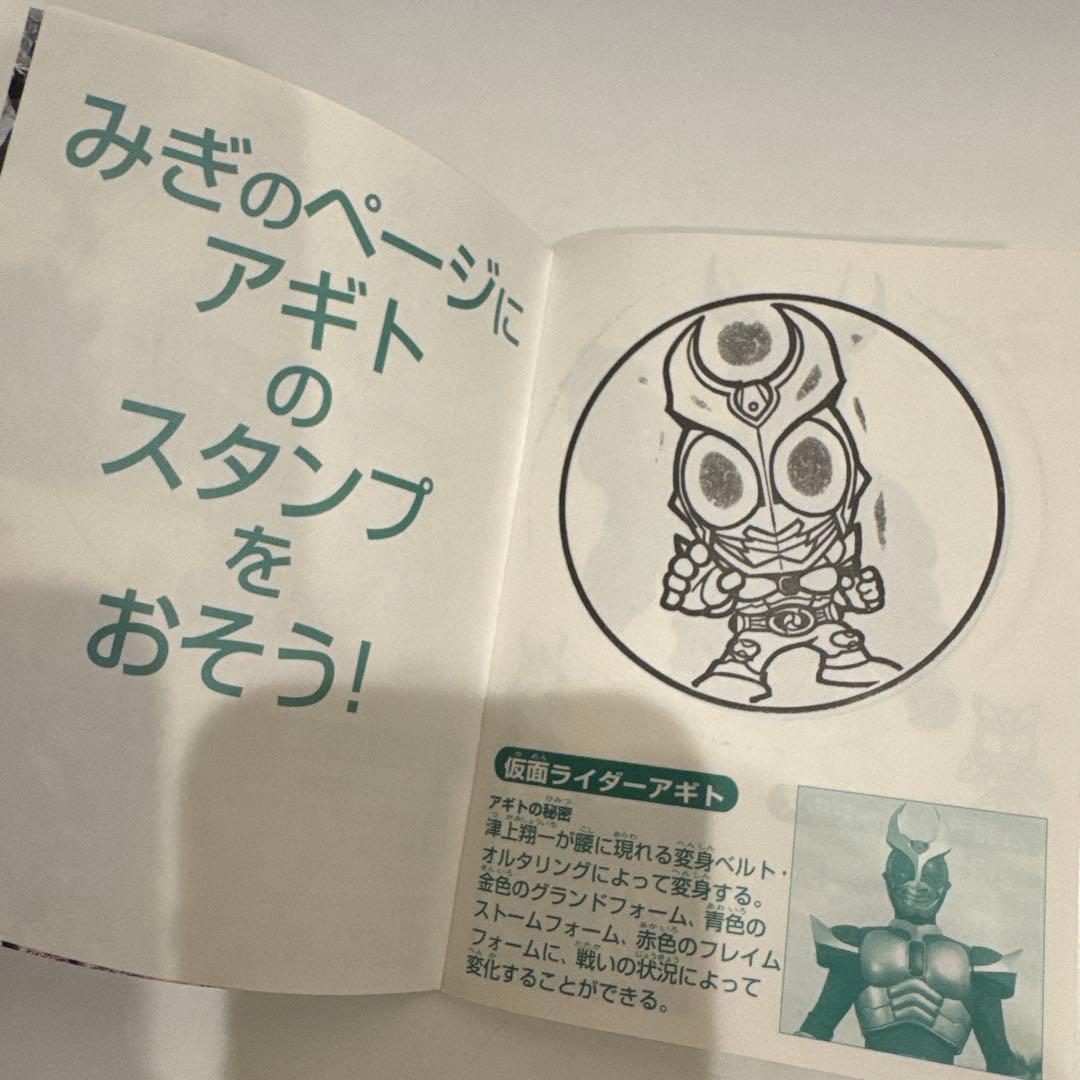 みぎのページに
アギト
の
スタンプ
を
おそう!
仮面ライダーアギト
アギトの秘密
津上翔一が腰に現れる変身ベルト・
オルタリングによって変身する。
金色のグランドフォーム、青色の
ストームフォーム、赤色のフレイム
フォームに、戦いの状況によって
変化することができる。